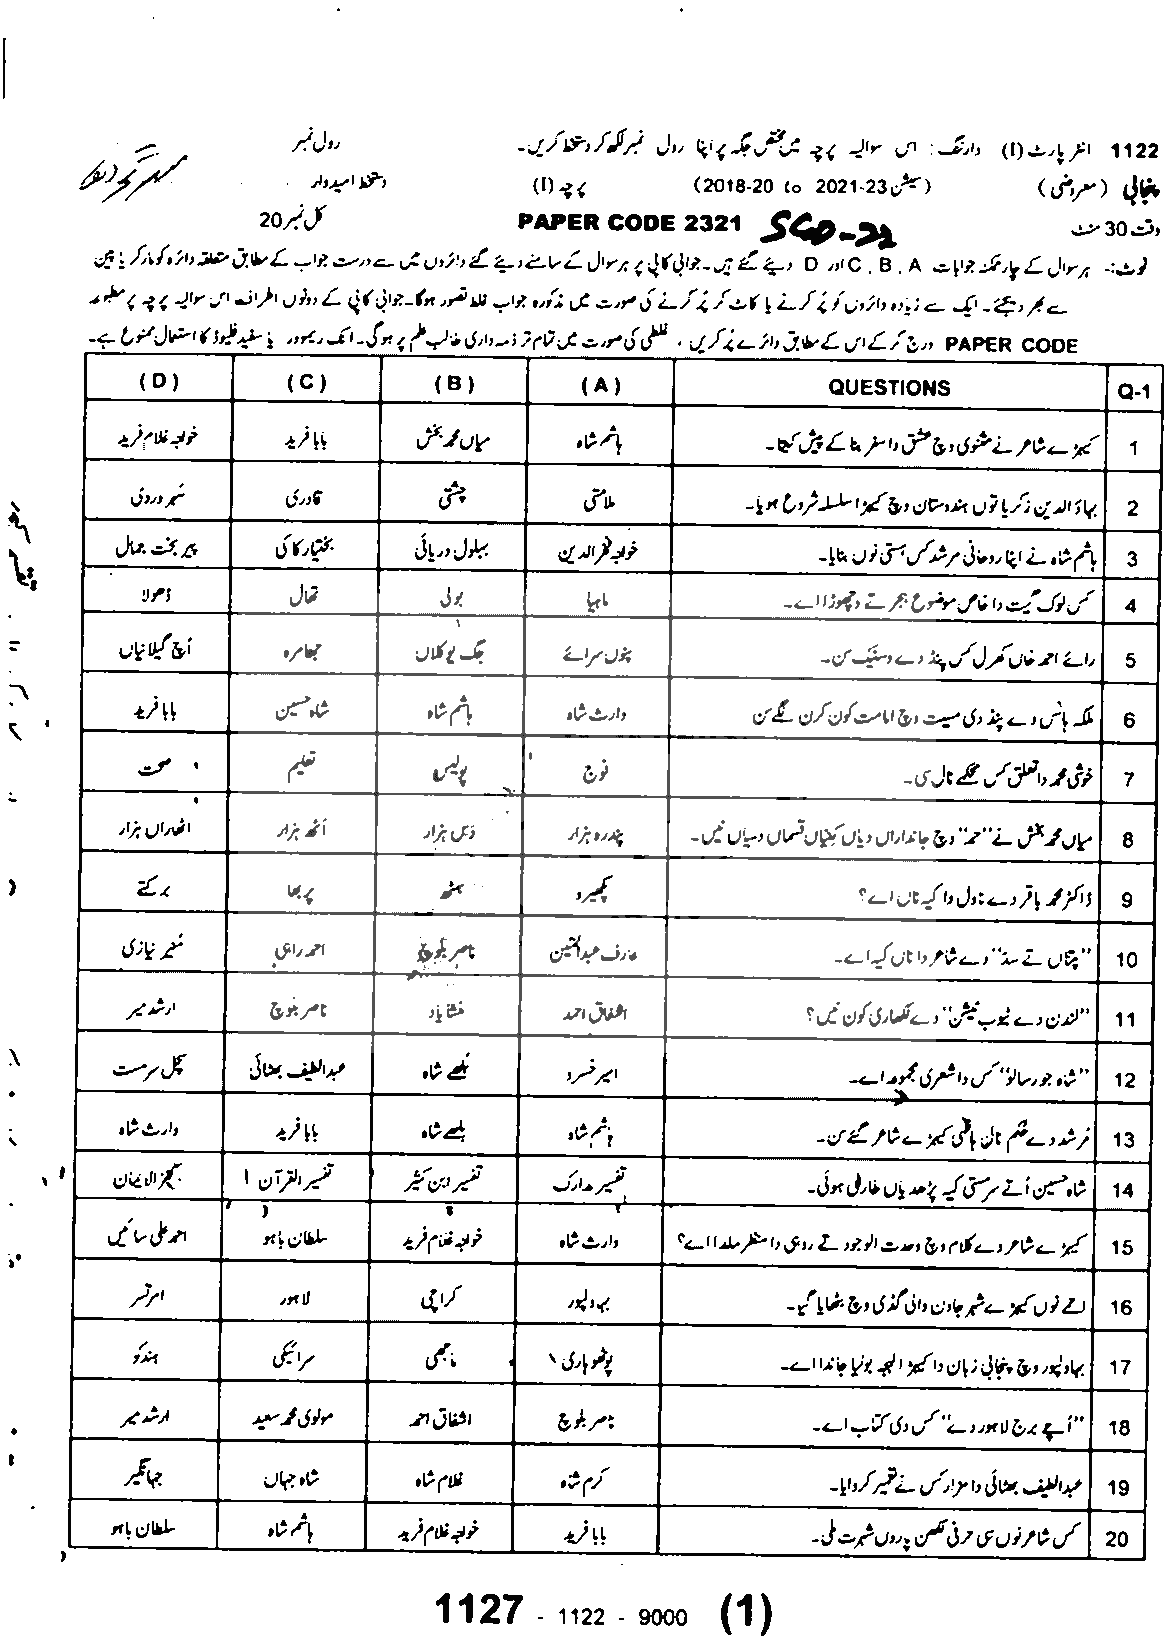 1122 انٹر پارٹ (I) وارننگ: اس سوالیہ پرچہ میں مختص جگہ پر اپنا رول نمبر لکھ کر دستخط کریں۔ رول نمبر
پنجابی (معروضی) (سیشن 2018-20 to 2021-23) پرچہ (I) دستخط امیدوار
وقت 30 منٹ PAPER CODE 2321 SGD-22 کل نمبر 20
نوٹ:- ہر سوال کے چار ممکنہ جوابات A ، B ، C اور D دیئے گئے ہیں۔ جوابی کاپی پر ہر سوال کے سامنے دیئے گئے دائروں میں سے درست جواب کے مطابق متعلقہ دائرہ کو مارکر یا پین
سے بھر دیجئے۔ ایک سے زیادہ دائروں کو پُر کرنے یا کاٹ کر پُر کرنے کی صورت میں مذکورہ جواب غلط تصور ہوگا۔ جوابی کاپی کے دونوں اطراف اس سوالیہ پرچہ پر مطبوعہ
PAPER CODE درج کر کے اس کے مطابق دائرے پُر کریں ، غلطی کی صورت میں تمام تر ذمہ داری طالب علم پر ہوگی۔ انک ریموور یا سفید فلیوڈ کا استعمال ممنوع ہے۔
Q-1 QUESTIONS (A) (B) (C) (D)
1 کیہڑے شاعر نے مثنوی وچ عشق دا سفر بنا کے پیش کیتا۔ ہاشم شاہ میاں محمد بخش بابا فرید خواجہ غلام فرید
2 بہاؤ الدین زکریا توں ہندوستان وچ کیہڑا سلسلہ شروع ہویا۔ ملامتی چشتی قادری سہروردی
3 ہاشم شاہ نے اپنا روحانی مرشد کس ہستی نوں بنایا۔ خواجہ فخر الدین بہلول دریائی بختیار کاکی پیر بخت جمال
4 کس لوک گیت دا خاص موضوع ہجر تے وچھوڑا اے۔ ماہیا بولی تھال ڈھولا
5 رائے احمد خاں کھرل کس پنڈ دے وسنیک سن۔ پنوں سرائے چک یوکلاں جھامرہ اُچ گیلانیاں
6 ملکہ ہانس دے پنڈ دی مسیت وچ امامت کون کرن لگے سن وارث شاہ ہاشم شاہ شاہ حسین بابا فرید
7 خوشی محمد دا تعلق کس محکمے نال سی۔ فوج پولیس تعلیم صحت
8 میاں محمد بخش نے "حمد" وچ جانداراں دیاں کِنیاں قسماں دسیاں نیں۔ پندرہ ہزار دس ہزار اٹھ ہزار اٹھاراں ہزار
9 ڈاکٹر محمد باقر دے ناول دا کیہ ناں اے؟ پکھیرو ہٹھ پربھا برکتے
10 "پتناں تے سد" دے شاعر دا ناں کیہ اے۔ عارف عبدالمتین ناصر بلوچ احمد راہی منیر نیازی
11 "لندن دے ٹیوب سٹیشن" دے لکھاری کون نیں؟ اشفاق احمد منشا یاد ناصر بلوچ ارشد میر
12 "شاہ جو رسالو" کس دا شعری مجموعہ اے۔ امیر خسرو بُلھے شاہ عبداللطیف بھٹائی سچل سرمست
13 مرشد دے حکم نال ہانسی کیہڑے شاعر گئے سن۔ ہاشم شاہ بلھے شاہ بابا فرید وارث شاہ
14 شاہ حسین اُتے سرمستی کیہ پڑھدیاں طاری ہوئی۔ تفسیر مدارک تفسیر ابن کثیر تفسیر القرآن کنز الایمان
15 کیہڑے شاعر دے کلام وچ وحدت الوجود تے روہی دا منظر ملدا اے؟ وارث شاہ خواجہ غلام فرید سلطان باہو احمد علی سائیں
16 اتے نوں کیہڑے شہر جاون والی گڈی وچ بٹھایا گیا۔ بہاولپور کراچی لاہور امرتسر
17 بہاولپور وچ پنجابی زبان دا کیہڑا لہجہ بولیا جاندا اے۔ پوٹھوہاری ماجھی سرائیکی ہندکو
18 "اُچے برج لاہور دے" کس دی کتاب اے۔ ناصر بلوچ اشفاق احمد مولوی محمد سعید ارشد میر
19 عبداللطیف بھٹائی دا مزار کس نے تعمیر کروایا۔ کرم شاہ غلام شاہ شاہ جہاں جہانگیر
20 کس شاعر نوں سی حرفی لکھن پاروں شہرت ملی۔ بابا فرید خواجہ غلام فرید ہاشم شاہ سلطان باہو
1127 - 1122 - 9000 (1)